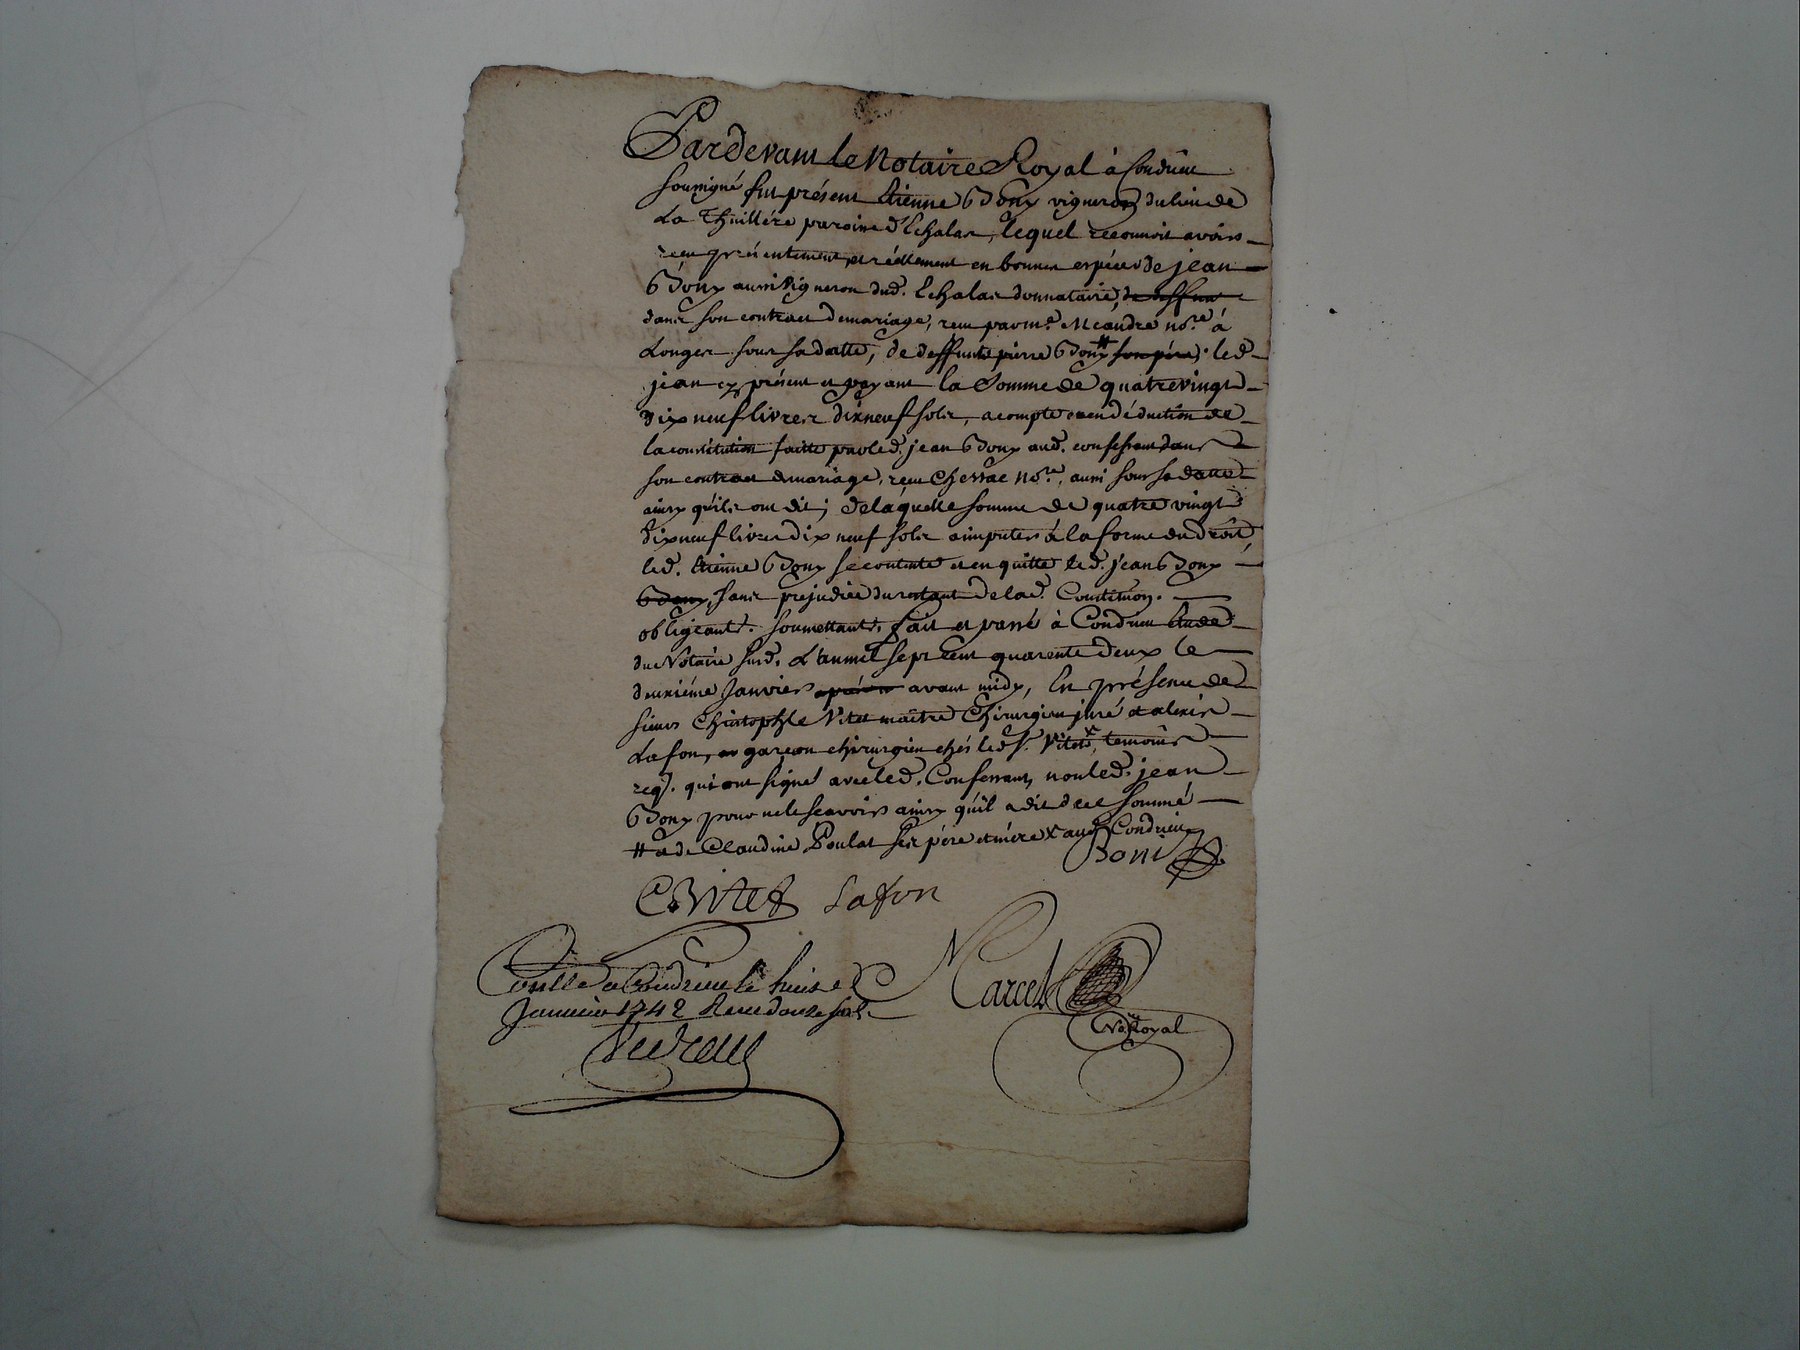 Pardevant le Notaire Royal à Condrieu
soussigné fut présent Etienne Bony vigneron du lieu de
La Thuillére paroisse d'Echalas, lequel reconnoit avoir
receu présentement et réellement en bonnes espéces de jean
Bony aussi vigneron dud. Echalas donnataire, de deffunt
dans son contract de mariage, receu par me. Meandre nore. à
Longes sous sa datte, de deffunts pierre Bony # son père, led.
jean cy présent et payant la somme de quatre vingt
dix neuf livres dix neuf sols, a compte et en déduction de
la constitution faitte par led. jean Bony aud. confessant dans
son contract de mariage, receu Chessac nore. aussi sous sa datte
ainsy qu'ils ont dit; de laquelle somme de quatre vingt
dix neuf livres dix neuf sols a imputer à la forme du droit,
led. Etienne Bony se contente et en quitte led. jean Bony
Bony, sans prejudice du restant de lad. Constituon.
obligeants. soumettants. fait et passé à Condrieu Etude
du Notaire susd. L'an mil sept cent quarente deux le
deuxiéme Janvier après avant midy, En présence de
sieur Christophle Vitet maitre Chirurgien juré et alexis
Lafon, garçon chirurgien chés led. sr. Vitet x, temoins
req. qui ont signé avec led. Confessant, non led. jean
Bony pour ne le sçavoir ainsy qu'il a dit de ce sommé
# et de Claudine Poulat ses père et mère x aud Condrieu
Boni
C. Vitet Lafon
Conllé a Condrieu le huit
Janvier 1742 Receu douze sols
Marcel
No. Royal